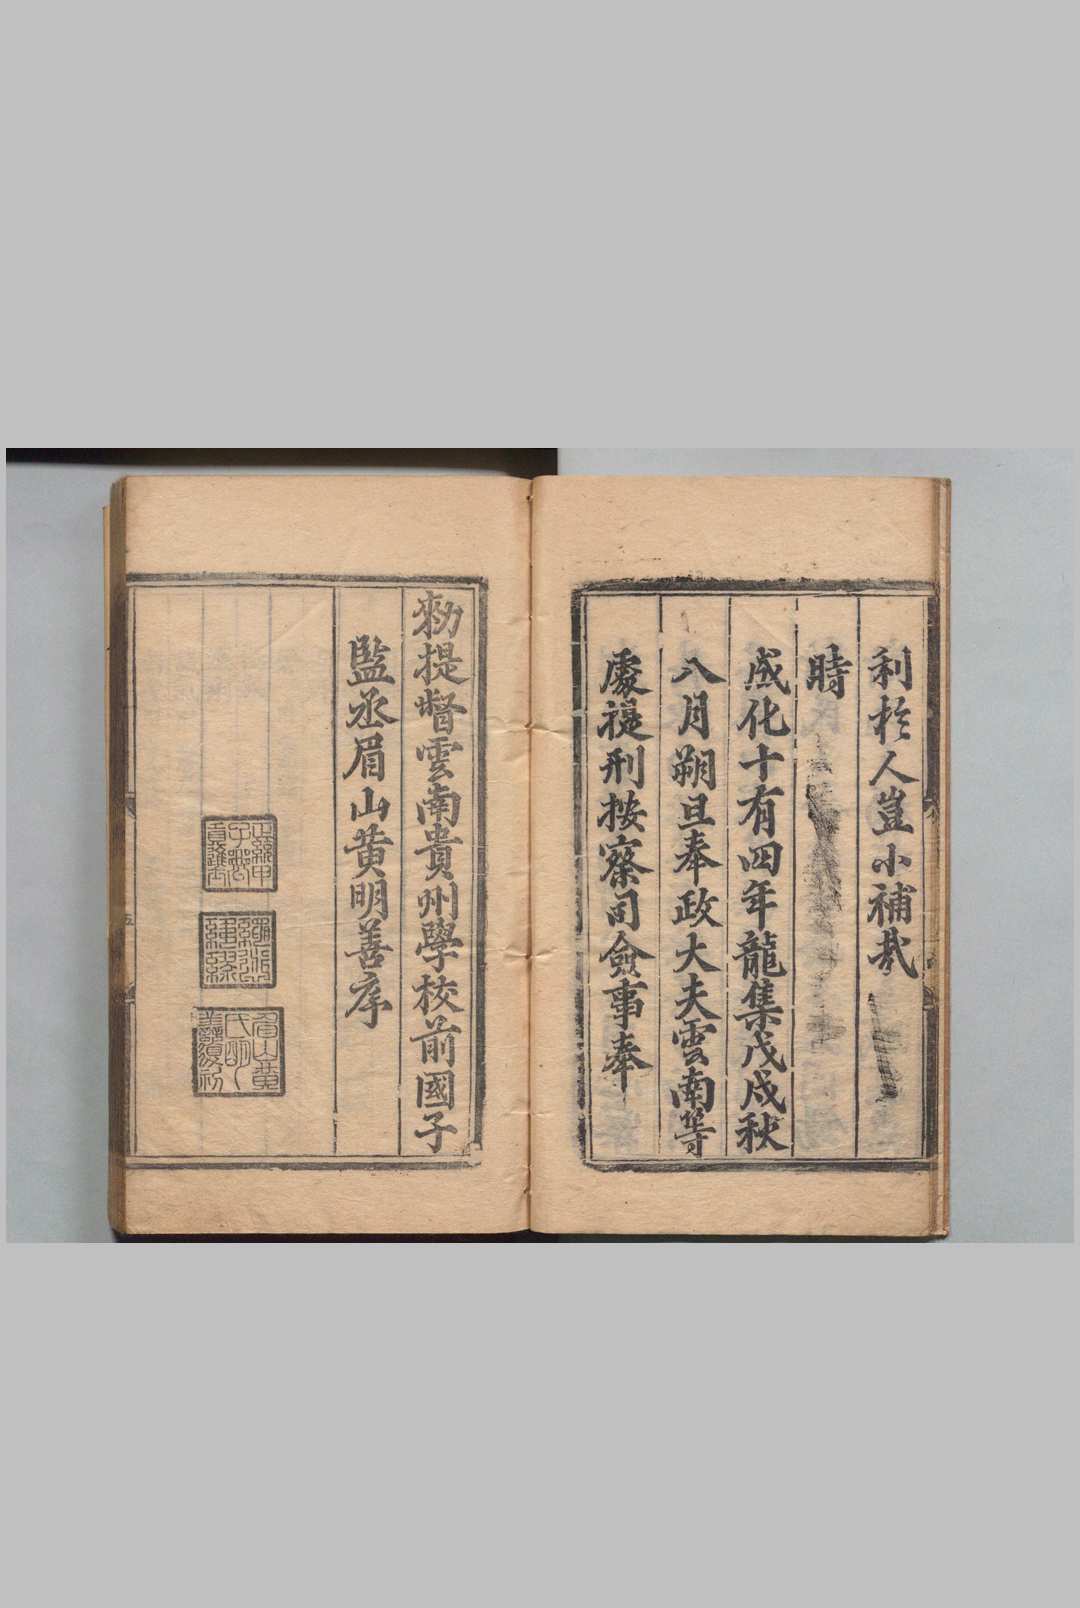 利於人豈小補哉
時
成化十有四年龍集戊戌秋
八月朔旦奉政大夫雲南等
處提刑按察司僉事奉
勑提督雲南貴州學校前國子
監丞眉山黃明善序
眉山黃氏明善復初